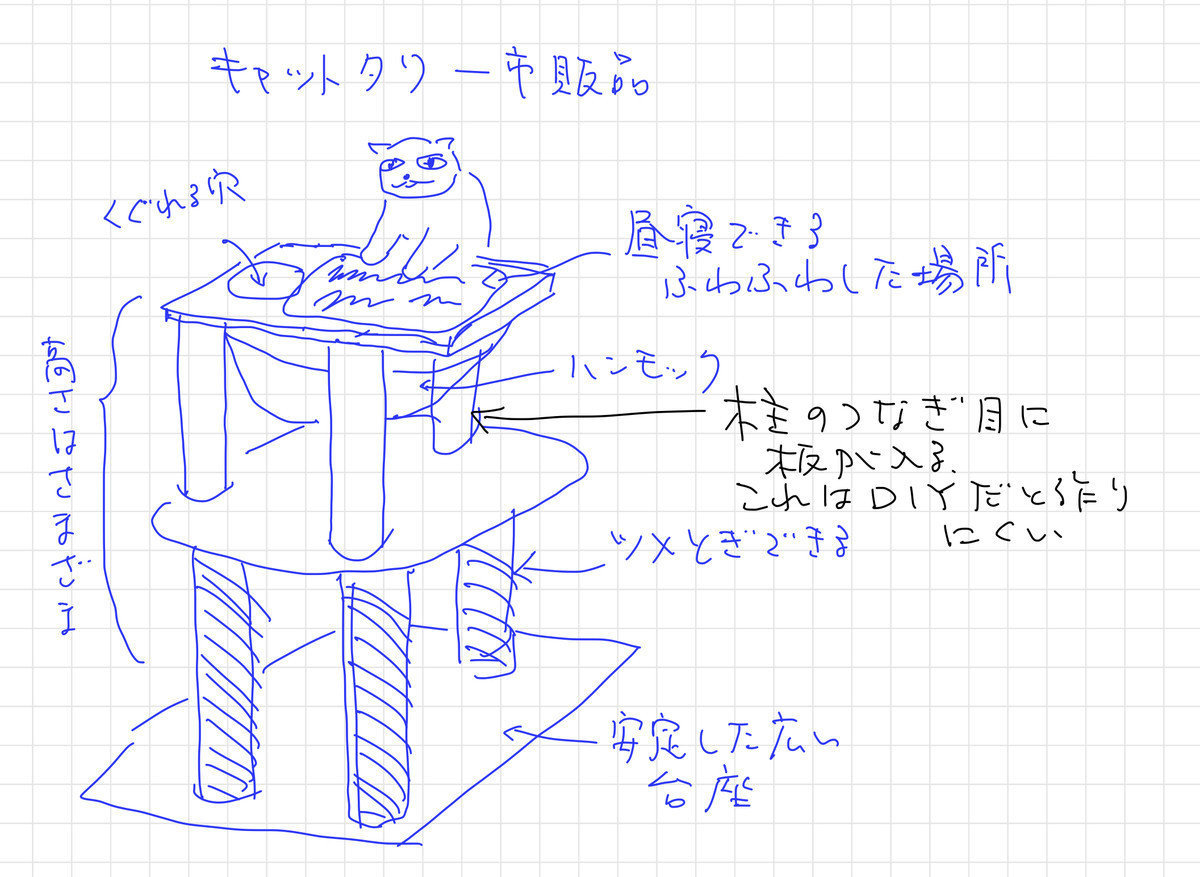 キャットタワー市販品
くぐれる穴
昼寝できる
ふわふわした場所
高さはさまざま
ハンモック
柱のつなぎ目に
板が入る。
これはDIYだと作り
にくい
ツメとぎできる
安定した広い
台座